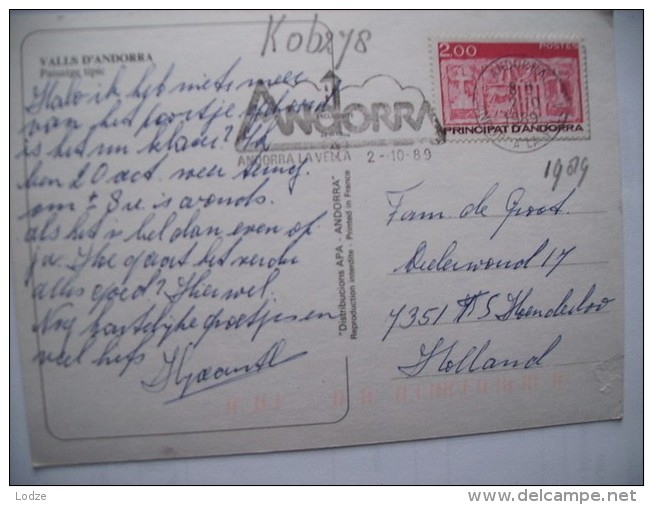 Kob278
VALLS D'ANDORRA
Paisatge típic
Halo ik heb niets meer
van het poortje gehoord
is het nu klaar? Ik
ben 20 oct weer terug
om ± 8 is avonds.
als het is bel dan even op
ja. Hoe gaat het verder
alles goed? Hier wel.
Nog hartelijke groetjes en
veel liefs
ANDORRA
ANDORRA LA VELLA 2-10-89
2.00 POSTES
PRINCIPAT D'ANDORRA
ANDORRA
1989
"Distribucions APA - ANDORRA"
Reproduction interdite - Printed in France
Fam. de Groot
17
7351 Hoenderloo
Holland
Lodze
www.delcampe.net